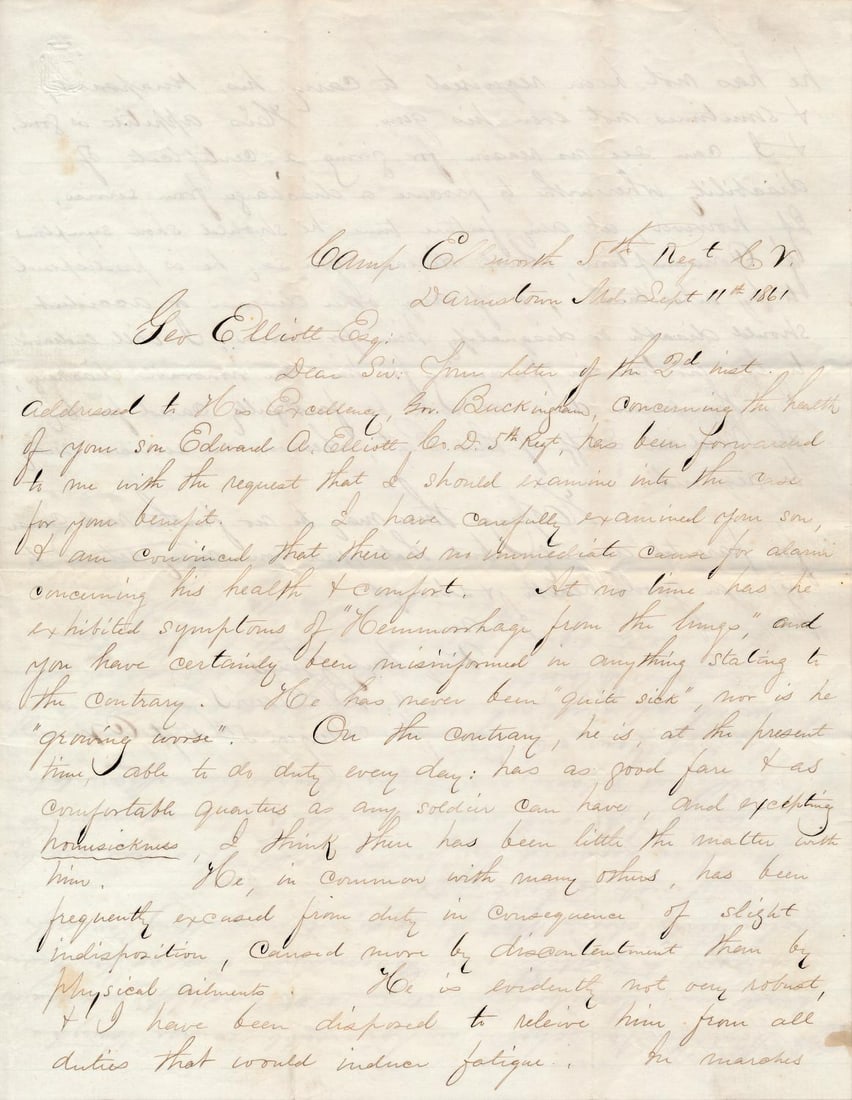 Camp Ellsworth 5th Regt C. V.
Darnestown Md. Sept 11th 1861
Geo Elliott Esq:
Dear Sir: Your letter of the 2d inst.
addressed to His Excellency, Gov. Buckingham, concerning the health
of your son Edward A. Elliott, Co. D. 5th Regt, has been forwarded
to me with the request that I should examine into the case
for your benefit. I have carefully examined your son,
& am convinced that there is no immediate cause for alarm
concerning his health & comfort. At no time has he
exhibited symptoms of "Hemmorrhage from the lungs," and
you have certainly been misinformed in anything stating to
the contrary. He has never been "quite sick", nor is he
"growing worse". On the contrary, he is, at the present
time, able to do duty every day: has as good fare & as
comfortable quarters as any soldier can have, and excepting
homesickness, I think there has been little the matter with
him. He, in common with many others, has been
frequently excused from duty in consequence of slight
indisposition, caused more by discontentment than by
physical ailments. He is evidently not very robust,
& I have been disposed to releive him from all
duties that would induce fatigue. In marches